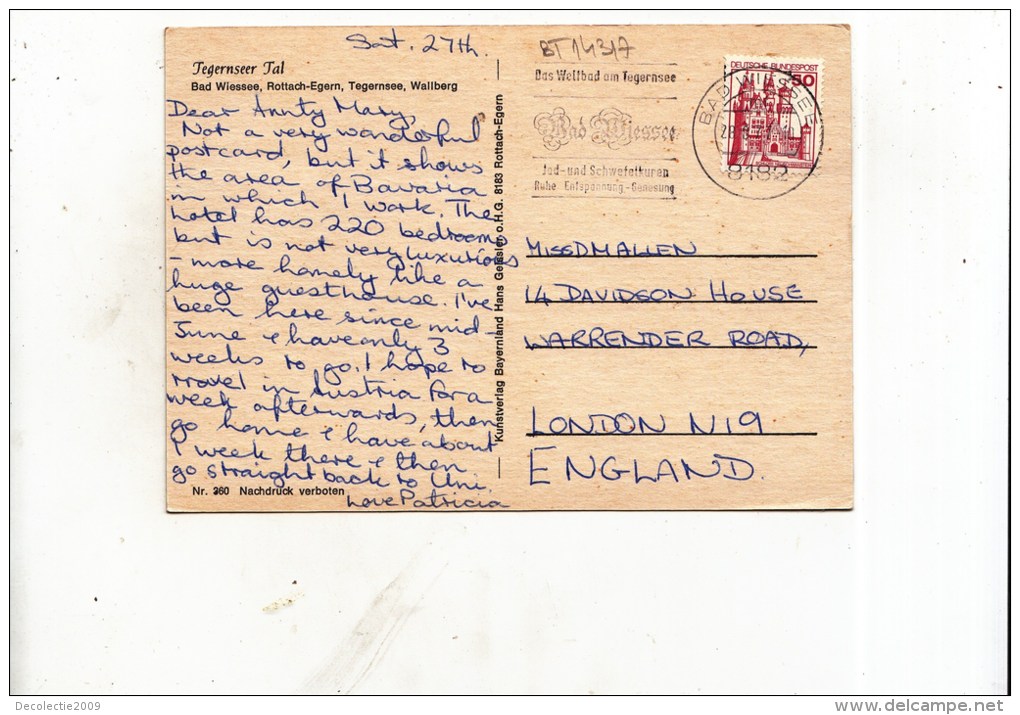 Sat. 27th.
Tegernseer Tal
Bad Wiessee, Rottach-Egern, Tegernsee, Wallberg
Dear Aunty Mary,
Not a very wonderful
postcard, but it shows
the area of Bavaria
in which I work. The
hotel has 220 bedrooms
but is not very luxurious
- more homely like a
huge guesthouse. I've
been here since mid-
June & have only 3
weeks to go. I hope to
travel in Austria for a
week afterwards, then
go home & have about
1 week there & then
go straight back to Uni.
Love Patricia
Nr. 360 Nachdruck verboten
Kunstverlag Bayernland Hans Gessler o.H.G. 8183 Rottach-Egern
BT14317
Das Weltbad am Tegernsee
Bad Wiessee
Jod- und Schwefelkuren
Ruhe Entspannung - Genesung
DEUTSCHE BUNDESPOST
50
BAD WIESSEE
8182
MISS D MALLEN
14 DAVIDSON HOUSE
WARRENDER ROAD,
LONDON N19
ENGLAND.
Decolectie2009
delcampe.net